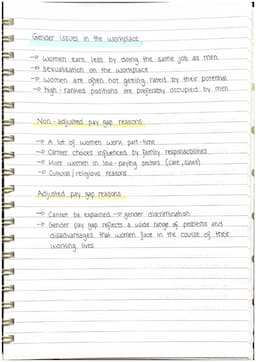 Gender issues in the workplace
→ Women earn less by doing the same job as men
→ Sexualisation on the workplace
→ Women are often not getting rated by their potential
→ high-ranked positions are preferably occupied by men
Non-adjusted pay gap reasons
→ A lot of women work part-time
→ Career choices influenced by family responsibilities
→ More women in low-paying sectors (care, sales)
→ Cultural/religious reasons
Adjusted pay gap reasons
→ Cannot be explained → gender discrimination
→ Gender pay gap reflects a wide range of problems and
disadvantages that women face in the course of their
working lives